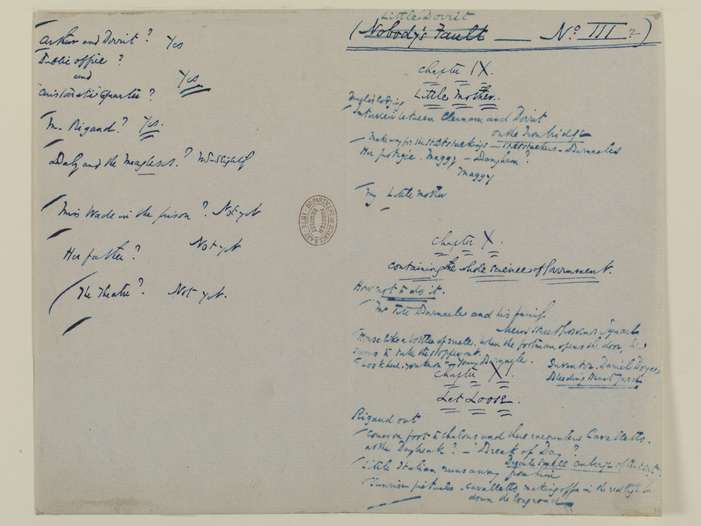 Arthur and Dorrit? Yes
Public office?
and
Aristocratic Quarter? Yes
M. Rigaud? Yes
and the Meagleses?
Miss Wade in the prison? Not yet
Her father? Not yet
The Theatre? Not yet.
Little Dorrit
(Nobody's Fault — No. III.)
Chapter IX.
Little Mother.
Interview between Clennam and Dorrit
on the Iron bridge
Barnacles
Her protegée. Maggy
Maggy
My little mother
Chapter X.
Containing the whole science of Government.
How not to do it.
Mr Tite Barnacle and his family
Mews Street Grosvenor Square
House like a bottle of smells, when the footman opens the door, he
seems to take the stopper out.
Young Barnacle.
Inventor. Daniel Doyce
Bleeding Heart Yard
Chapter XI.
Let Loose.
Rigaud out
Comes on foot to Chalons and there encounters Cavalletto.
at the Daybreak? — Break of Day?
Little Italian runs away from him
Cavalletto making off in the red light
down the long road